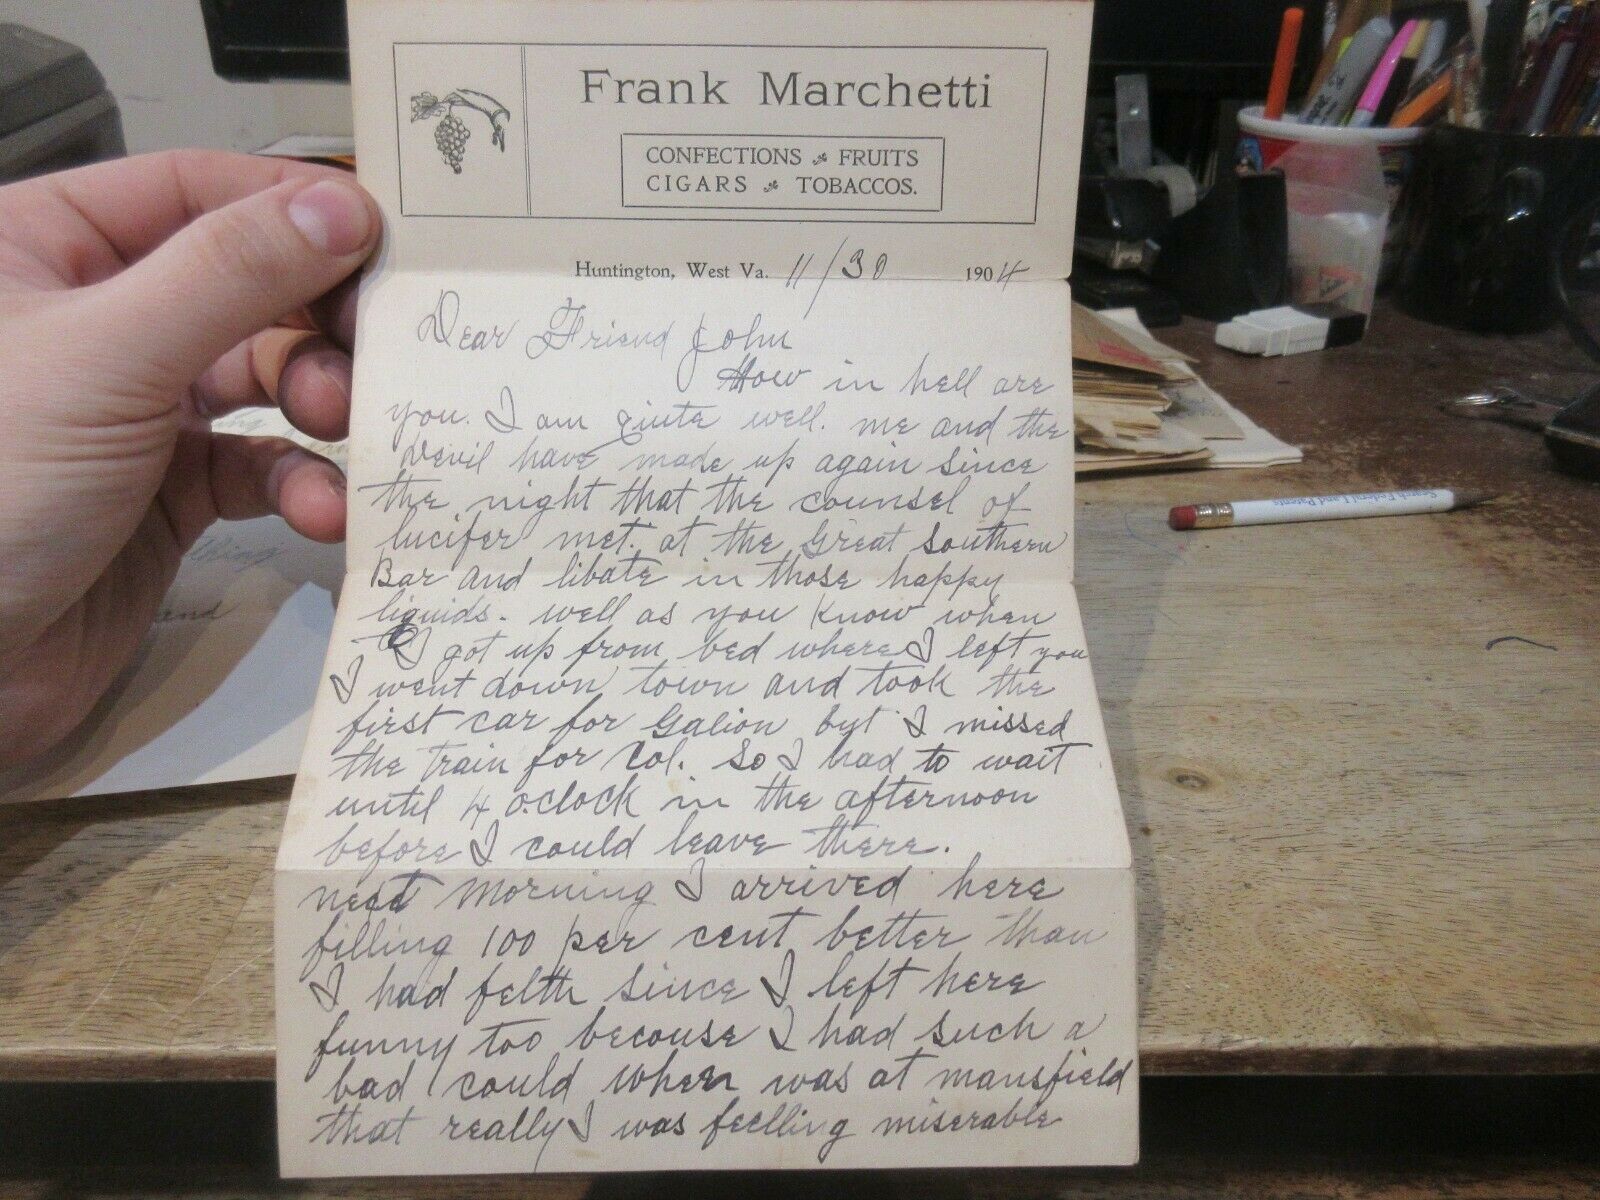 Frank Marchetti
CONFECTIONS FRUITS
CIGARS TOBACCOS.
Huntington, West Va. 11/30 1904
Dear Friend John
How in hell are
you. I am quite well. me and the
Devil have made up again since
the night that the counsel of
lucifer met. at the Great Southern
Bar and libate in those happy
liquids. well as you know when
I got up from bed where I left you
I went down town and took the
first car for Galion but I missed
the train for Col. So I had to wait
until 4 o.clock in the afternoon
before I could leave there.
next morning I arrived here
filling 100 per cent better than
I had felth since I left here
funny too becouse I had such a
bad could when was at mansfield
that really I was feelling miserable
Search Federal Land Patents
and